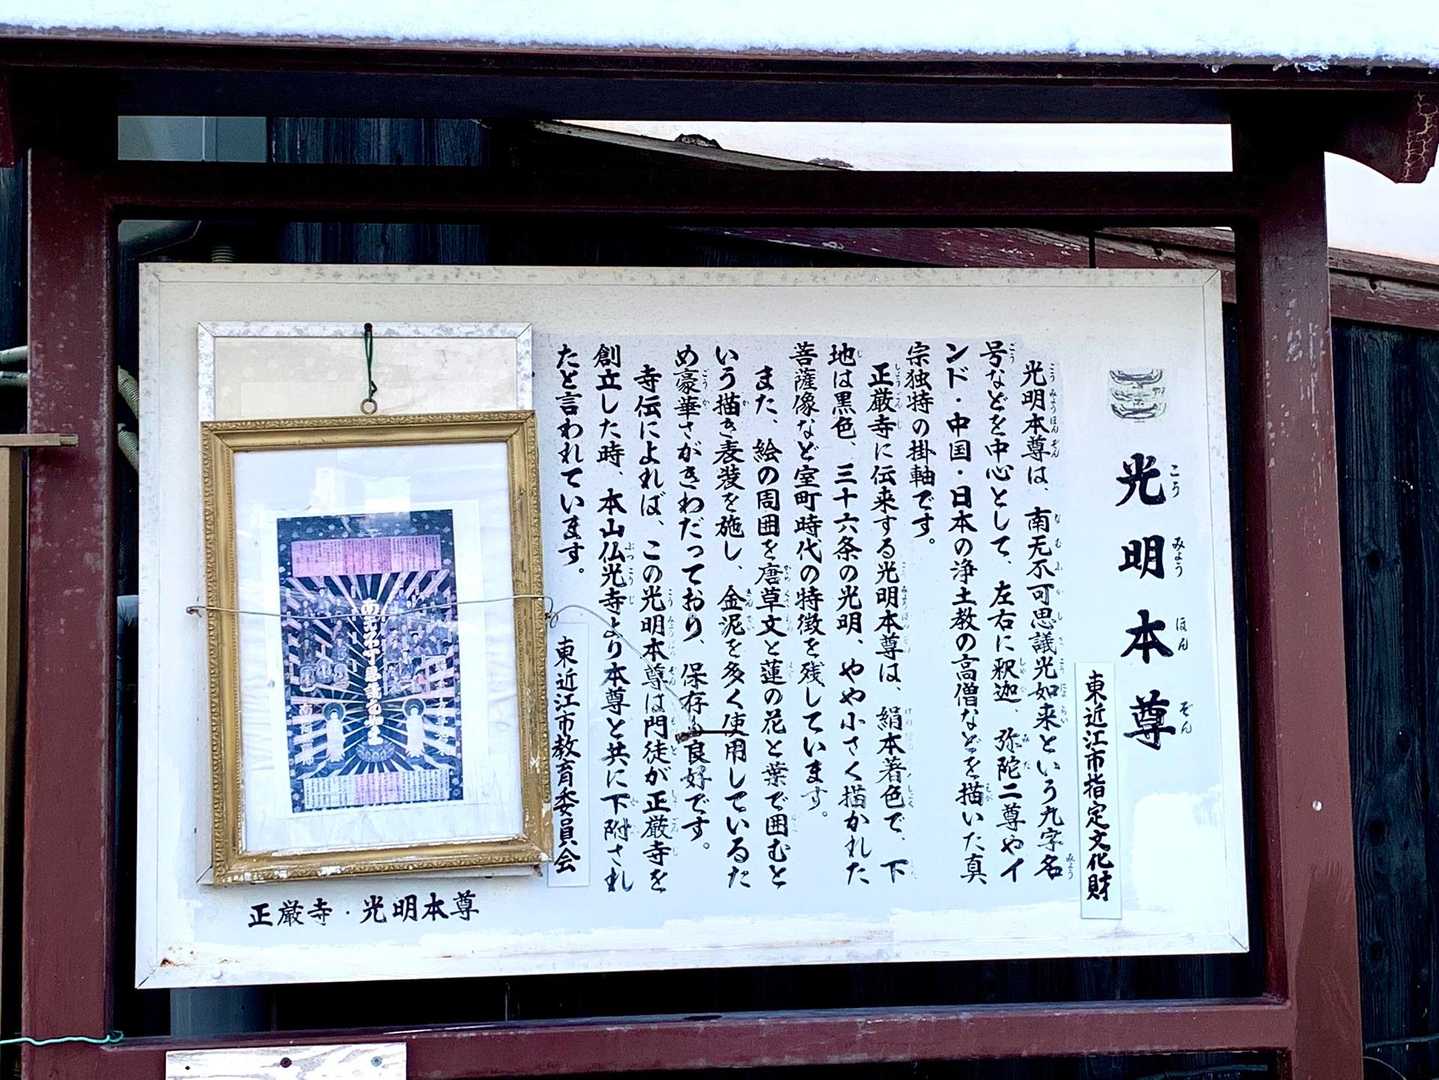 光明本尊
こうみょうほんぞん
東近江市指定文化財
光明本尊は、南无不可思議光如来という九字名
号などを中心として、左右に釈迦、弥陀二尊やイ
ンド・中国・日本の浄土教の高僧などを描いた真
宗独特の掛軸です。
正厳寺に伝来する光明本尊は、絹本着色で、下
地は黒色、三十六条の光明、やや小さく描かれた
菩薩像など室町時代の特徴を残しています。
また、絵の周囲を唐草文と蓮の花と葉で囲むと
いう描き表装を施し、金泥を多く使用しているた
め豪華さがきわだっており、保存も良好です。
寺伝によれば、この光明本尊は門徒が正厳寺を
創立した時、本山仏光寺より本尊と共に下附され
たと言われています。
東近江市教育委員会
正厳寺・光明本尊